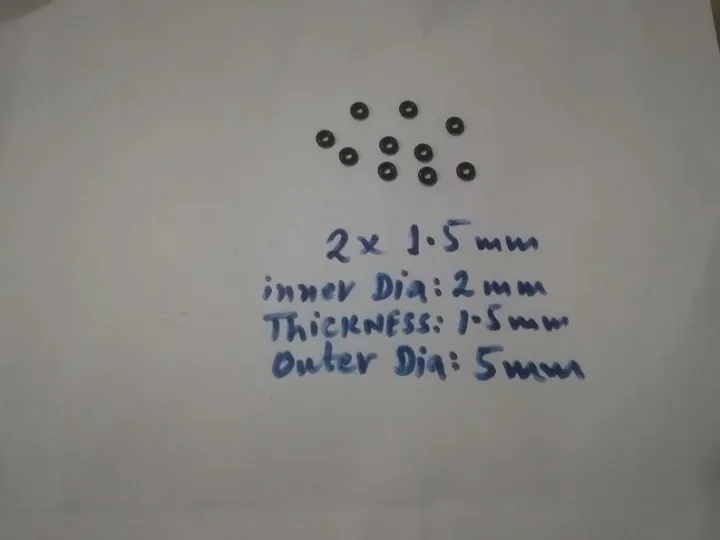 2 x 1.5 mm
inner Dia: 2 mm
THiCKNESS: 1.5 mm
Outer Dia: 5 mm